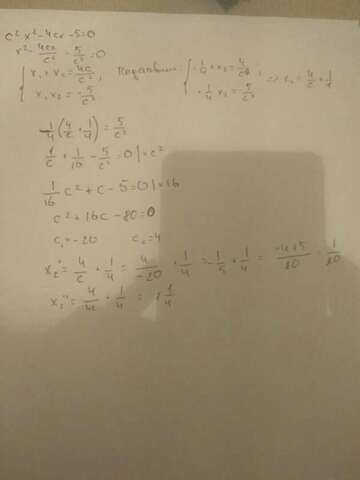 c² x² - 4cx - 5 = 0
x² - 4cx/c² - 5/c² = 0
{ x₁ + x₂ = 4c/c², { -1/4 + x₂ = 4/c, => x₂ = 4/c + 1/4
x₁ x₂ = -5/c² -1/4 x₂ = -5/c²
-1/4 (4/c + 1/4) = 5/c²
1/c + 1/16 - 5/c² = 0 | × c²
1/16 c² + c - 5 = 0 | × 16
c² + 16c - 80 = 0
c₁ = -20 c₂ = 4
x₂' = 4/c + 1/4 = 4/-20 + 1/4 = -1/5 + 1/4 = -4+5/20 = 1/20
x₂'' = 4/4 + 1/4 = 1 1/4